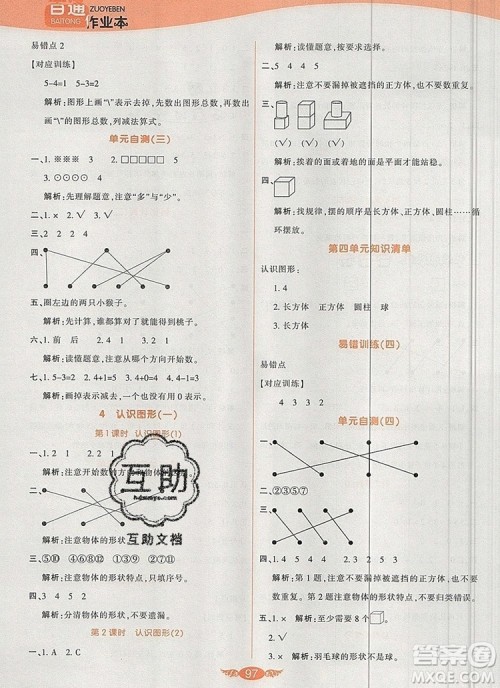 百通
BAITONG
ZUOYEBEN
作业本
易错点 2
[对应训练]
5-4=1 5-3=2
解析:图形上画“\”表示去掉,先数出图形总数,再数出画“\”的图形总数,列减法算式。
单元自测(三)
一、1. 3 2. □□□□□
3. ⊙⊙⊙⊙ 4. 5
解析:先理解题意,注意“多”与“少”。
二、1. × 2. √ 3. √
四、
五、圈左边的两只小猴子。
解析:先计算,谁都和谁能得到桃子。
六、1. 前 后 2. 4 2
解析:读懂题意,注意数数的方向。
七、1. 5-3=2 2. 4+1=5 3. 4-4=0
解析:画掉表示去掉,没有剩余用0表示。
4 认识图形(一)
第1课时 认识图形(1)
一、1. 2 2. 1 2 2 1
解析:注意开始数的方
二、
解析:注意物体的形状
三、⑤⑩ ④⑥⑧⑫ ①②③⑨ ⑦⑪
解析:注意物体的形状特点,识记序号。
四、3 4 5 2
解析:分清物体的形状,不要遗漏。
第2课时 认识图形(2)
一、1. A 2. C
解析:读懂题意,按要求选择。
二、5 2 4 4
解析:注意不要漏掉被遮挡的正方体,也不能重复。
三、
(√) (√) (√)
解析:挨着的面或站着地的是平面才能站稳。
四、
解析:找规律,摆的顺序是长方体、正方体……循环摆放。
第四单元知识清单
认识图形:
1. 4
2. 长方体 正方体 圆柱 球
易错训练(四)
易错点
[对应训练]
4 3 3 2
单元自测(四)
一、
二、②③⑤⑦
三、
四、1. 5 2. 4 4 5 1
解析:第 1 题,注意不要漏掉被遮挡的正方体,也不能重复。第 2 题注意物体的形状特点,不要归类错误。
五、1. × 解析:至少需要 8 个
2. √
3. × 解析:羽毛球的形状不是球。
97
互助
互助文档
答案圈
MXQE.COM